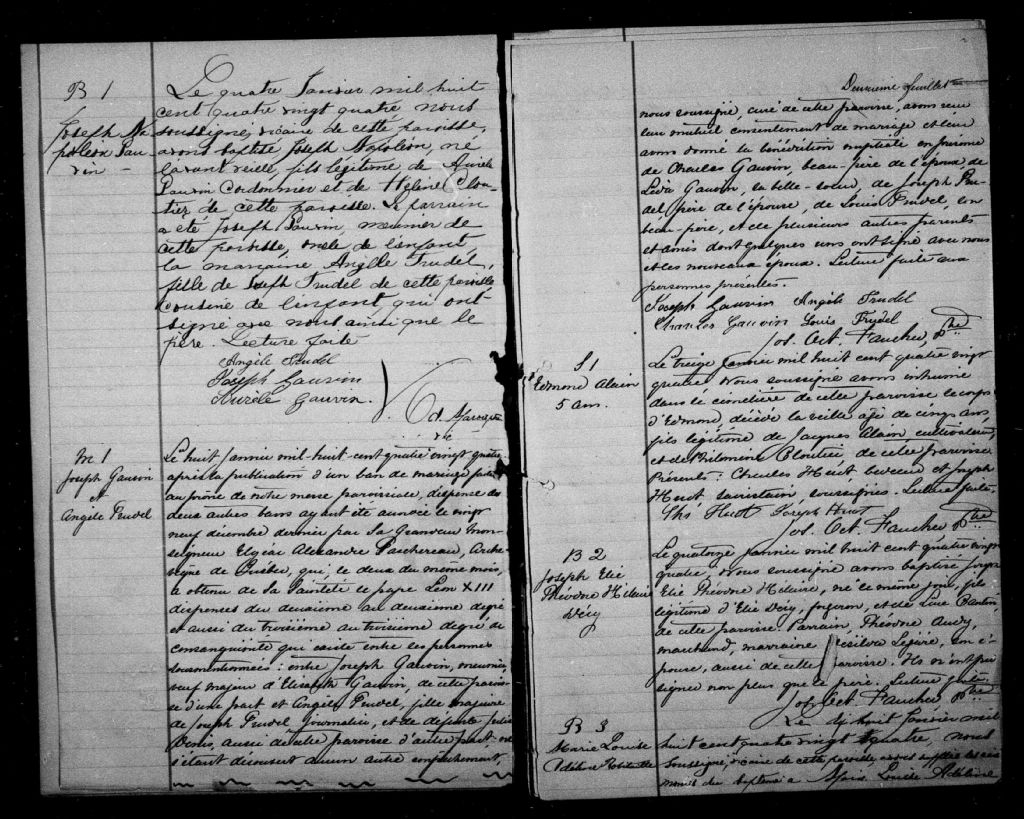 B 1
Joseph Na
poléon Gau
vin -
Le quatre Janvier mil huit
cent quatre vingt quatre nous
soussigné, vicaire de cette paroisse,
avons baptisé Joseph Napoléon, né
l'avant veille, fils légitime de Aurèle
Gauvin Cordonnier et de Hélène Clou-
tier de cette paroisse. Le parrain
a été Joseph Gauvin, meunier de
cette paroisse, oncle de l'enfant,
la marraine Angèle Trudel,
fille de Joseph Trudel de cette paroisse
cousine de l'enfant qui ont
signé avec nous ainsi que le
père. Lecture faite
Angèle Trudel
Joseph Gauvin
Aurèle Gauvin.
M 1
Joseph Gauvin
et
Angèle Trudel
Le huit Janvier mil huit cent quatre vingt quatre
après la publication d'un ban de mariage faite
au prône de notre messe paroissiale, dispense des
deux autres bans ayant été accordée le vingt
neuf décembre dernier par Sa Grandeur Mon-
seigneur Elzéar Alexandre Taschereau, Arche-
vêque de Québec, qui, le deux du même mois,
a obtenu de Sa Sainteté le pape Léon XIII
dispenses du deuxième au deuxième degré
et aussi du troisième au troisième degré de
consanguinité qui existe entre les personnes
sousmentionnées: entre Joseph Gauvin, meunier,
veuf majeur d'Elisabeth Gauvin, de cette parois-
se d'une part et Angèle Trudel, fille majeure
de Joseph Trudel journalier, et de défunte Julie
Denis, aussi de cette paroisse d'autre part; ne
s'étant découvert aucun autre empêchement,
Deuxième feuillet
nous soussigné, curé de cette paroisse, avons reçu
leur mutuel consentement de mariage et leur
avons donné la bénédiction nuptiale en présence
de Charles Gauvin, beau-père de l'époux de
Léda Gauvin, sa belle-soeur, de Joseph Tru-
del père de l'épouse, de Louis Trudel, son
beau-père, et de plusieurs autres parents
et amis dont quelques uns ont signé avec nous
et les nouveaux époux. Lecture faite aux
personnes présentes.
Joseph Gauvin Angèle Trudel
Charles Gauvin Louis Trudel
Jos. Oct. Faucher Ptre
S 1
Edmond Alain
5 ans.
Le treize Janvier mil huit cent quatre vingt
quatre Nous soussigné avons inhumé
dans le cimetière de cette paroisse le corps
d'Edmond, décédé la veille âgé de cinq ans,
fils légitime de Jacques Alain cultivateur,
et de Philomène Plourde de cette paroisse
Présents: Charles Huot bedeau et Joseph
Huot sacristain, soussignés. Lecture faite.
Chs Huot Joseph Huot
Jos. Oct. Faucher Ptre
B 2
Joseph Elie
Théodore Hilaire
Déry
Le quatorze Janvier mil huit cent quatre vingt
quatre, Nous soussigné avons baptisé Joseph
Elie Théodore Hilaire, né ce même jour fils
légitime d'Elie Déry, forgeron, et de
de cette paroisse. Parrain, Théodore Audy,
marchand, marraine Césilda Légaré, son é-
pouse, aussi de cette paroisse. Ils n'ont pu
signer non plus que le père. Lecture faite.
Jos. Oct. Faucher Ptre
B 3
Marie Louise
Adéline Robitaille
Le dix huit Janvier mil
huit cent quatre vingt quatre, nous
soussigné, vicaire de cette paroisse, avons suppléé les céré
monies du baptême à Marie Louise Adéline